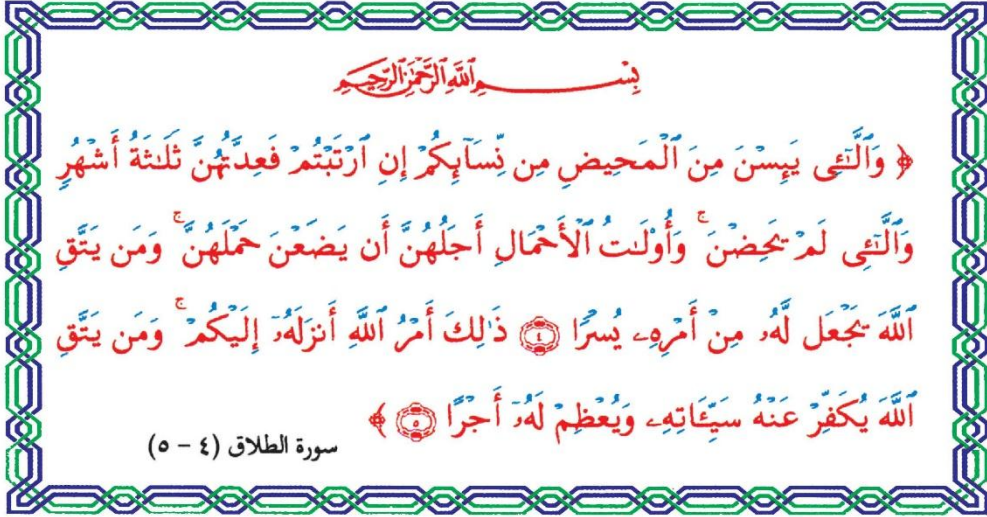 بِسْمِ ٱللَّهِ ٱلرَّحْمَٰنِ ٱلرَّحِيمِ
﴿ وَٱلَّٰٓـِٔى يَئِسْنَ مِنَ ٱلْمَحِيضِ مِن نِّسَآئِكُمْ إِنِ ٱرْتَبْتُمْ فَعِدَّتُهُنَّ ثَلَٰثَةُ أَشْهُرٍ
وَٱلَّٰٓـِٔى لَمْ يَحِضْنَ ۚ وَأُو۟لَٰتُ ٱلْأَحْمَالِ أَجَلُهُنَّ أَن يَضَعْنَ حَمْلَهُنَّ ۚ وَمَن يَتَّقِ
ٱللَّهَ يَجْعَل لَّهُۥ مِنْ أَمْرِهِۦ يُسْرًا ۝٤ ذَٰلِكَ أَمْرُ ٱللَّهِ أَنزَلَهُۥٓ إِلَيْكُمْ ۚ وَمَن يَتَّقِ
ٱللَّهَ يُكَفِّرْ عَنْهُ سَيِّـَٔاتِهِۦ وَيُعْظِمْ لَهُۥٓ أَجْرًا ۝٥ ﴾
سورة الطلاق (٤ - ٥)